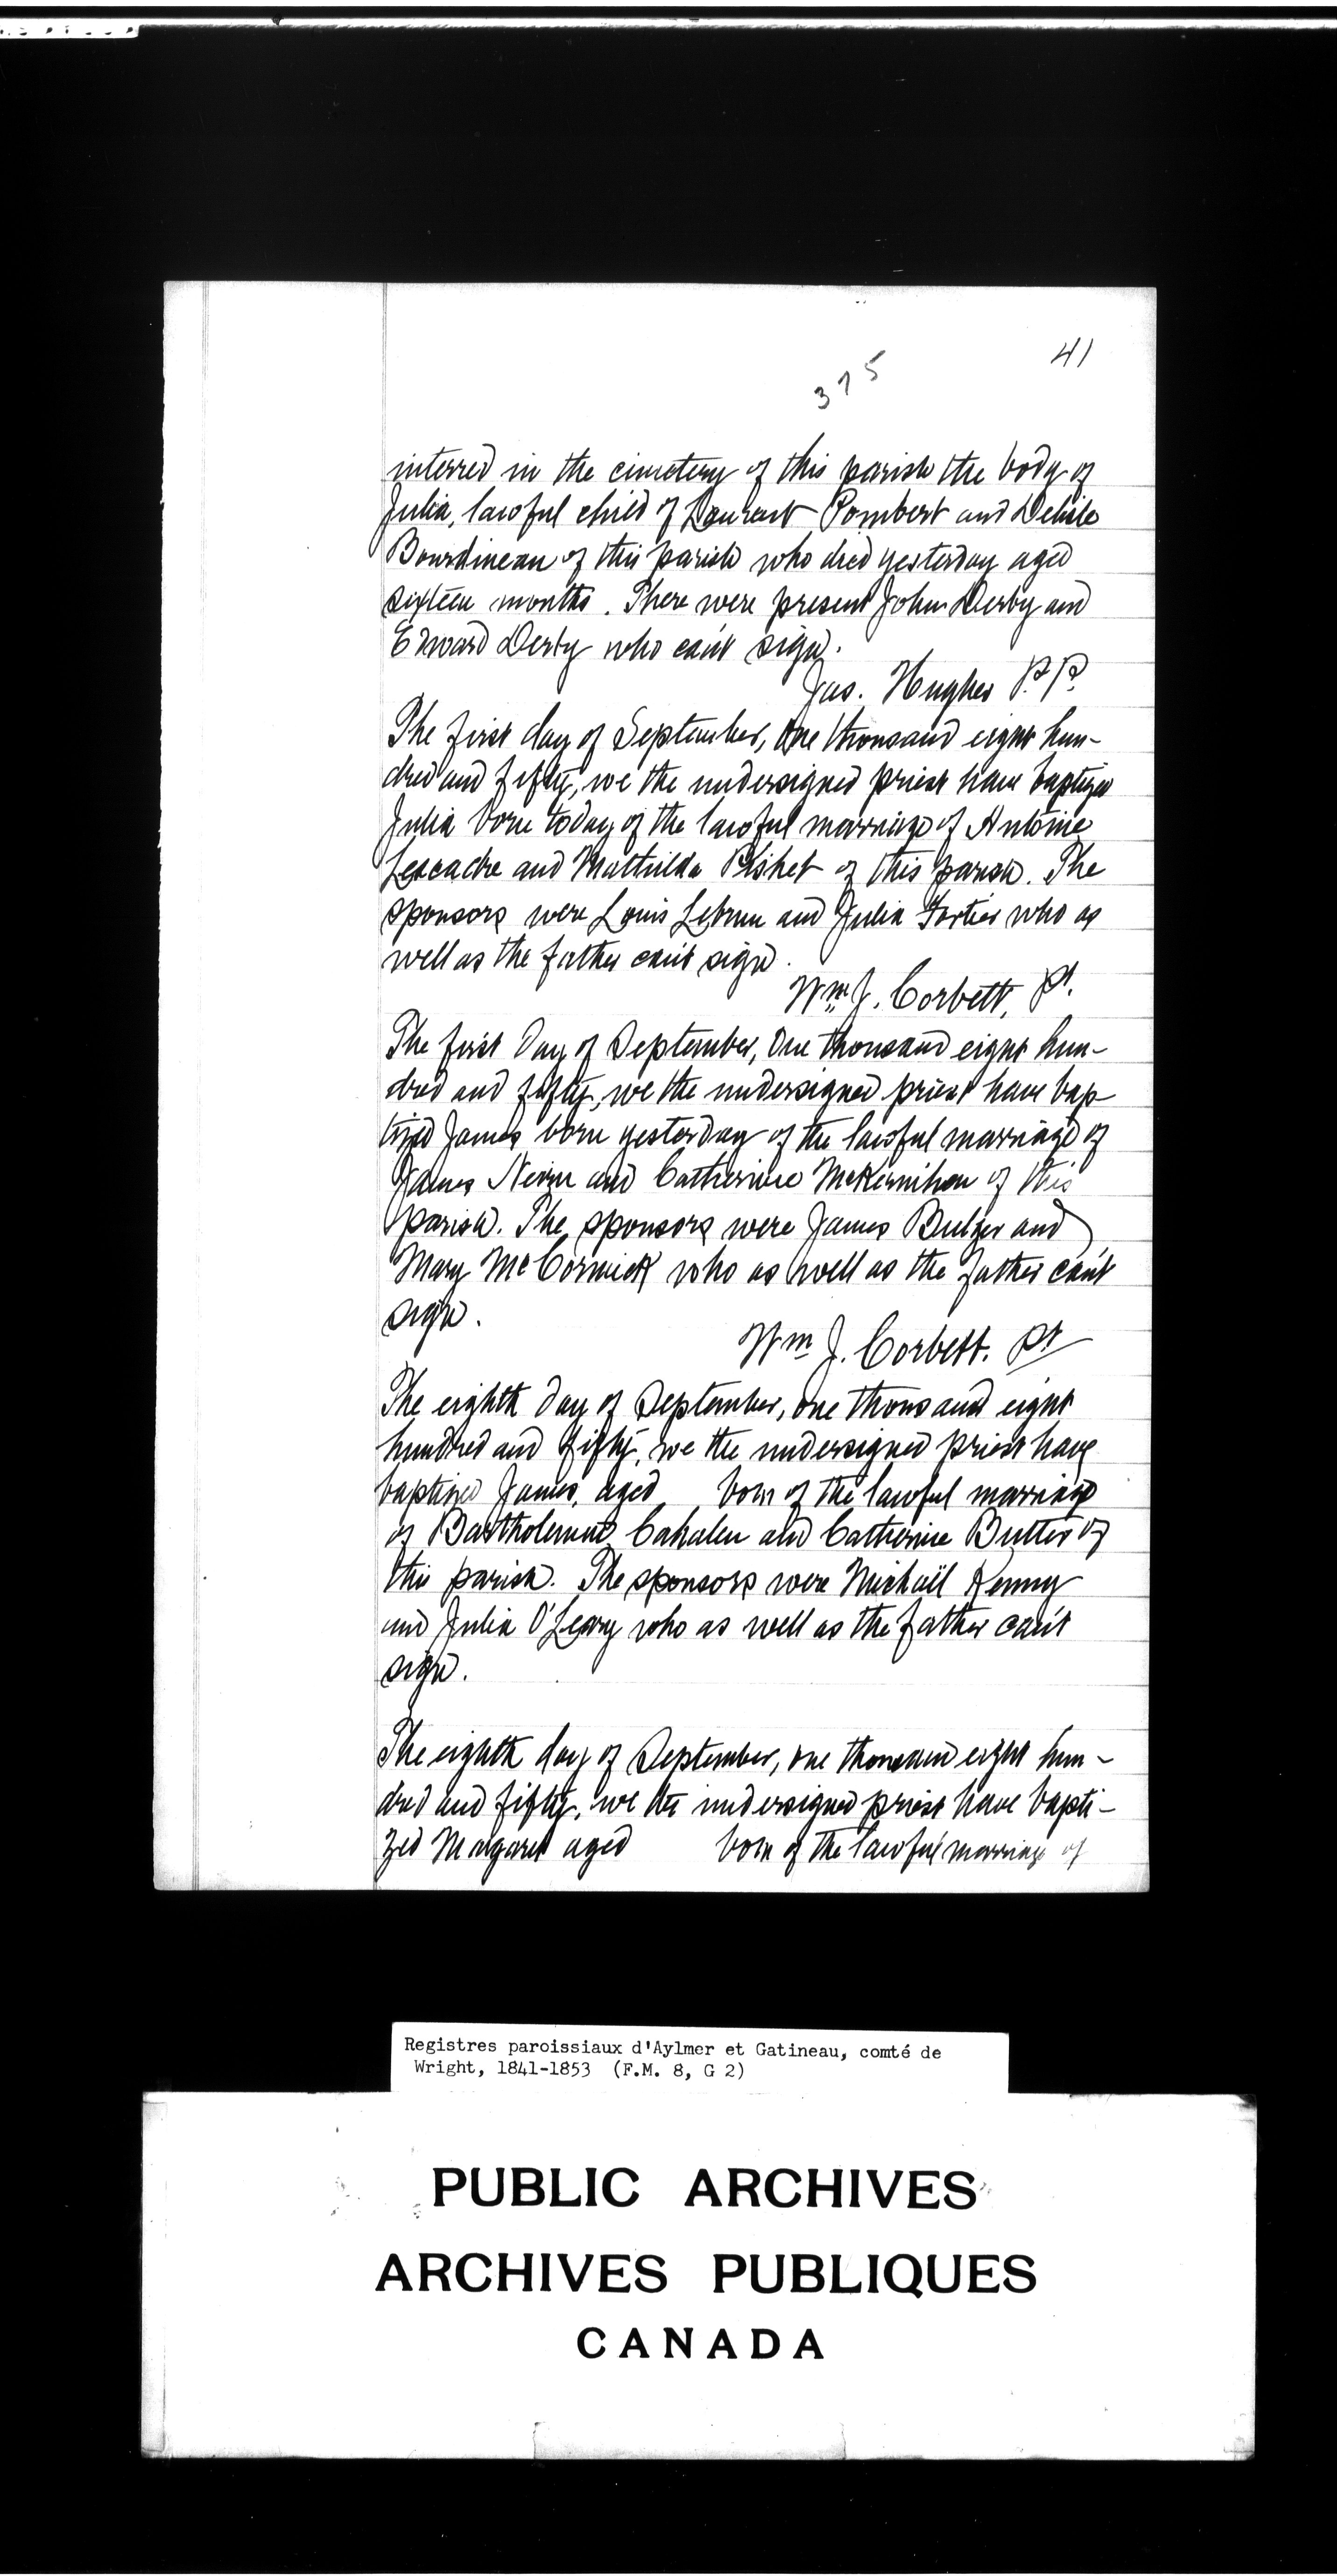 41
375
interred in the cimetery of this parish the body of
Julia, lawful child of Laurent Pombert and Delide
Bourdineau of this parish who died yesterday aged
sixteen months. There were present John Derby and
Edward Derby who can't sign.
Jas. Hughes P.P.
The first day of September, One thousand eight hun-
dred and fifty, we the undersigned priest have baptized
Julia born today of the lawful marriage of Antoine
and Mathilda of this parish. The
sponsors were Louis Lebrun and Julia Fortier who as
well as the father can't sign.
Wm. J. Corbett, Pt.
The first Day of September, One thousand eight hun-
dred and fifty, we the undersigned priest have bap-
tized James born yesterday of the lawful marriage of
James Nevin and Catherine McKernihan of this
parish. The sponsors were James Bulger and
Mary McCormick who as well as the father can't
sign.
Wm J. Corbett. Pt
The eighth Day of September, one thousand eight
hundred and fifty, we the undersigned priest have
baptized James, aged born of the lawful marriage
of Bartholemew Cahalen and Catherine Butter of
this parish. The sponsors were Michaël Kenny
and Julia O'Leary who as well as the father can't
sign.
The eighth day of September, one thousand eight hun-
dred and fifty, we the undersigned priest have bapti-
zed Margaret aged born of the lawful marriage of
Registres paroissiaux d'Aylmer et Gatineau, comté de
Wright, 1841-1853 (F.M. 8, G 2)
PUBLIC ARCHIVES
ARCHIVES PUBLIQUES
CANADA